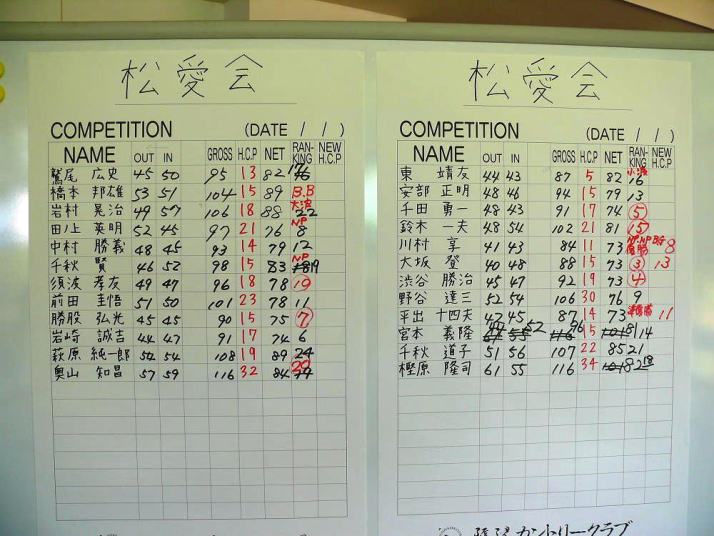 松愛会
COMPETITION (DATE / / )
NAME OUT IN GROSS H.C.P NET RAN-KING NEW H.C.P
鷲尾 広史 45 50 95 13 82 17
橋本 邦雄 53 51 104 15 89 B.B
岩村 晃治 49 57 106 18 88 大波 22
田ノ上 英明 52 45 97 21 76 NP 8
中村 勝義 48 45 93 14 79 12
千秋 賢 46 52 98 15 83 NP 19
須波 孝友 49 47 96 18 78
前田 圭悟 51 50 101 23 78 11
勝股 弘光 45 45 90 15 75 7
岩崎 誠吉 44 47 91 17 74 6
萩原 純一郎 54 54 108 19 89 24
奥山 知昌 57 59 116 32 84 20
松愛会
COMPETITION (DATE / / )
NAME OUT IN GROSS H.C.P NET RAN-KING NEW H.C.P
東 靖友 44 43 87 5 82 小波 16
安部 正明 48 46 94 15 79 13
千田 勇一 48 43 91 17 74 5
鈴木 一夫 48 54 102 21 81 15
川村 享 41 43 84 11 73 NP.NP BG 優勝 8
大坂 登 40 48 88 15 73 3 13
渋谷 勝治 45 47 92 19 73 4
野谷 達三 52 54 106 30 76 9
平出 十四夫 42 45 87 14 73 準優勝 11
宮本 義隆 44 52 96 15 81 14
千秋 道子 51 56 107 22 85 21
樫原 隆司 61 55 116 34 82 18
カントリークラブ